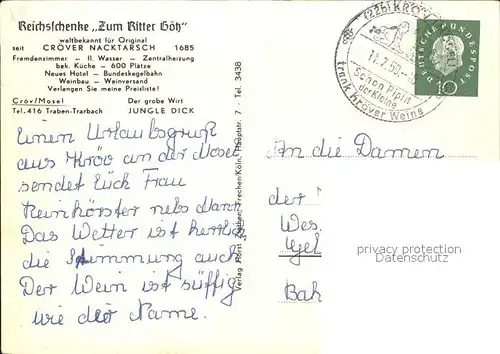 Reichsschenke „Zum Ritter Götz"
weltbekannt für Original
seit CRÖVER NACKTARSCH 1685
Fremdenzimmer — fl. Wasser — Zentralheizung
bek. Küche — 600 Plätze
Neues Hotel — Bundeskegelbahn
Weinbau — Weinversand
Verlangen Sie meine Preisliste!
Crov/Mosel Der grobe Wirt
Tel. 416 Traben-Trarbach JUNGLE DICK
Einen Urlaubsgruß
aus Kröv an der Mosel
sendet Euch Frau
Reinhörster nebs Mann
Das Wetter ist herrlich
die Stimmung auch
Der Wein ist süffig
wie der Name.
Verlag Horst Frechen/Köln, Hauptstr. 7 - Tel. 3438
(22b) KRÖV
11.7.60
Schon Pipin
der Kleine
trank Kröver Weine
DEUTSCHE BUNDESPOST
10
An die Damen
der
Wes.
Gel
Bah
privacy protection
Datenschutz